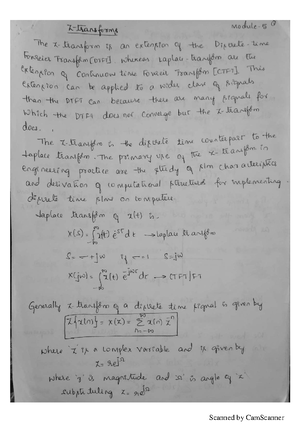 Z-transforms
Module-5
The z-transform is an extension of the Discrete-time
Fourier Transform [DTFT] whereas Laplace transform are the
extension of continuous time Fourier Transform [CTFT]. This
extension can be applied to a wider class of signals
than the DTFT can because there are many signals for
which the DTFT does not converge but the z-transform
does.
The z-transform is the discrete time counterpart to the
Laplace transform. The primary use of the z-transform in
engineering practice are the study of s/m characteristics
and derivation of computational structures for implementing
discrete time s/m on computers.
Laplace transform of x(t) is.
X(s) = ∫ x(t) e^-st dt → Laplace transform
s = σ+jω if σ=1 s=jω
X(jω) = ∫ x(t) e^-jωt dt → CTFT/FT
Generally z-transform of a discrete time signal is given by
Z{x(n)} = X(z) = Σ x(n) z^-n
where 'z' is a complex variable and is given by
z = re^jΩ
where 'r' is magnitude and 'Ω' is angle of 'z'
substituting z = re^jΩ
Scanned by CamScanner